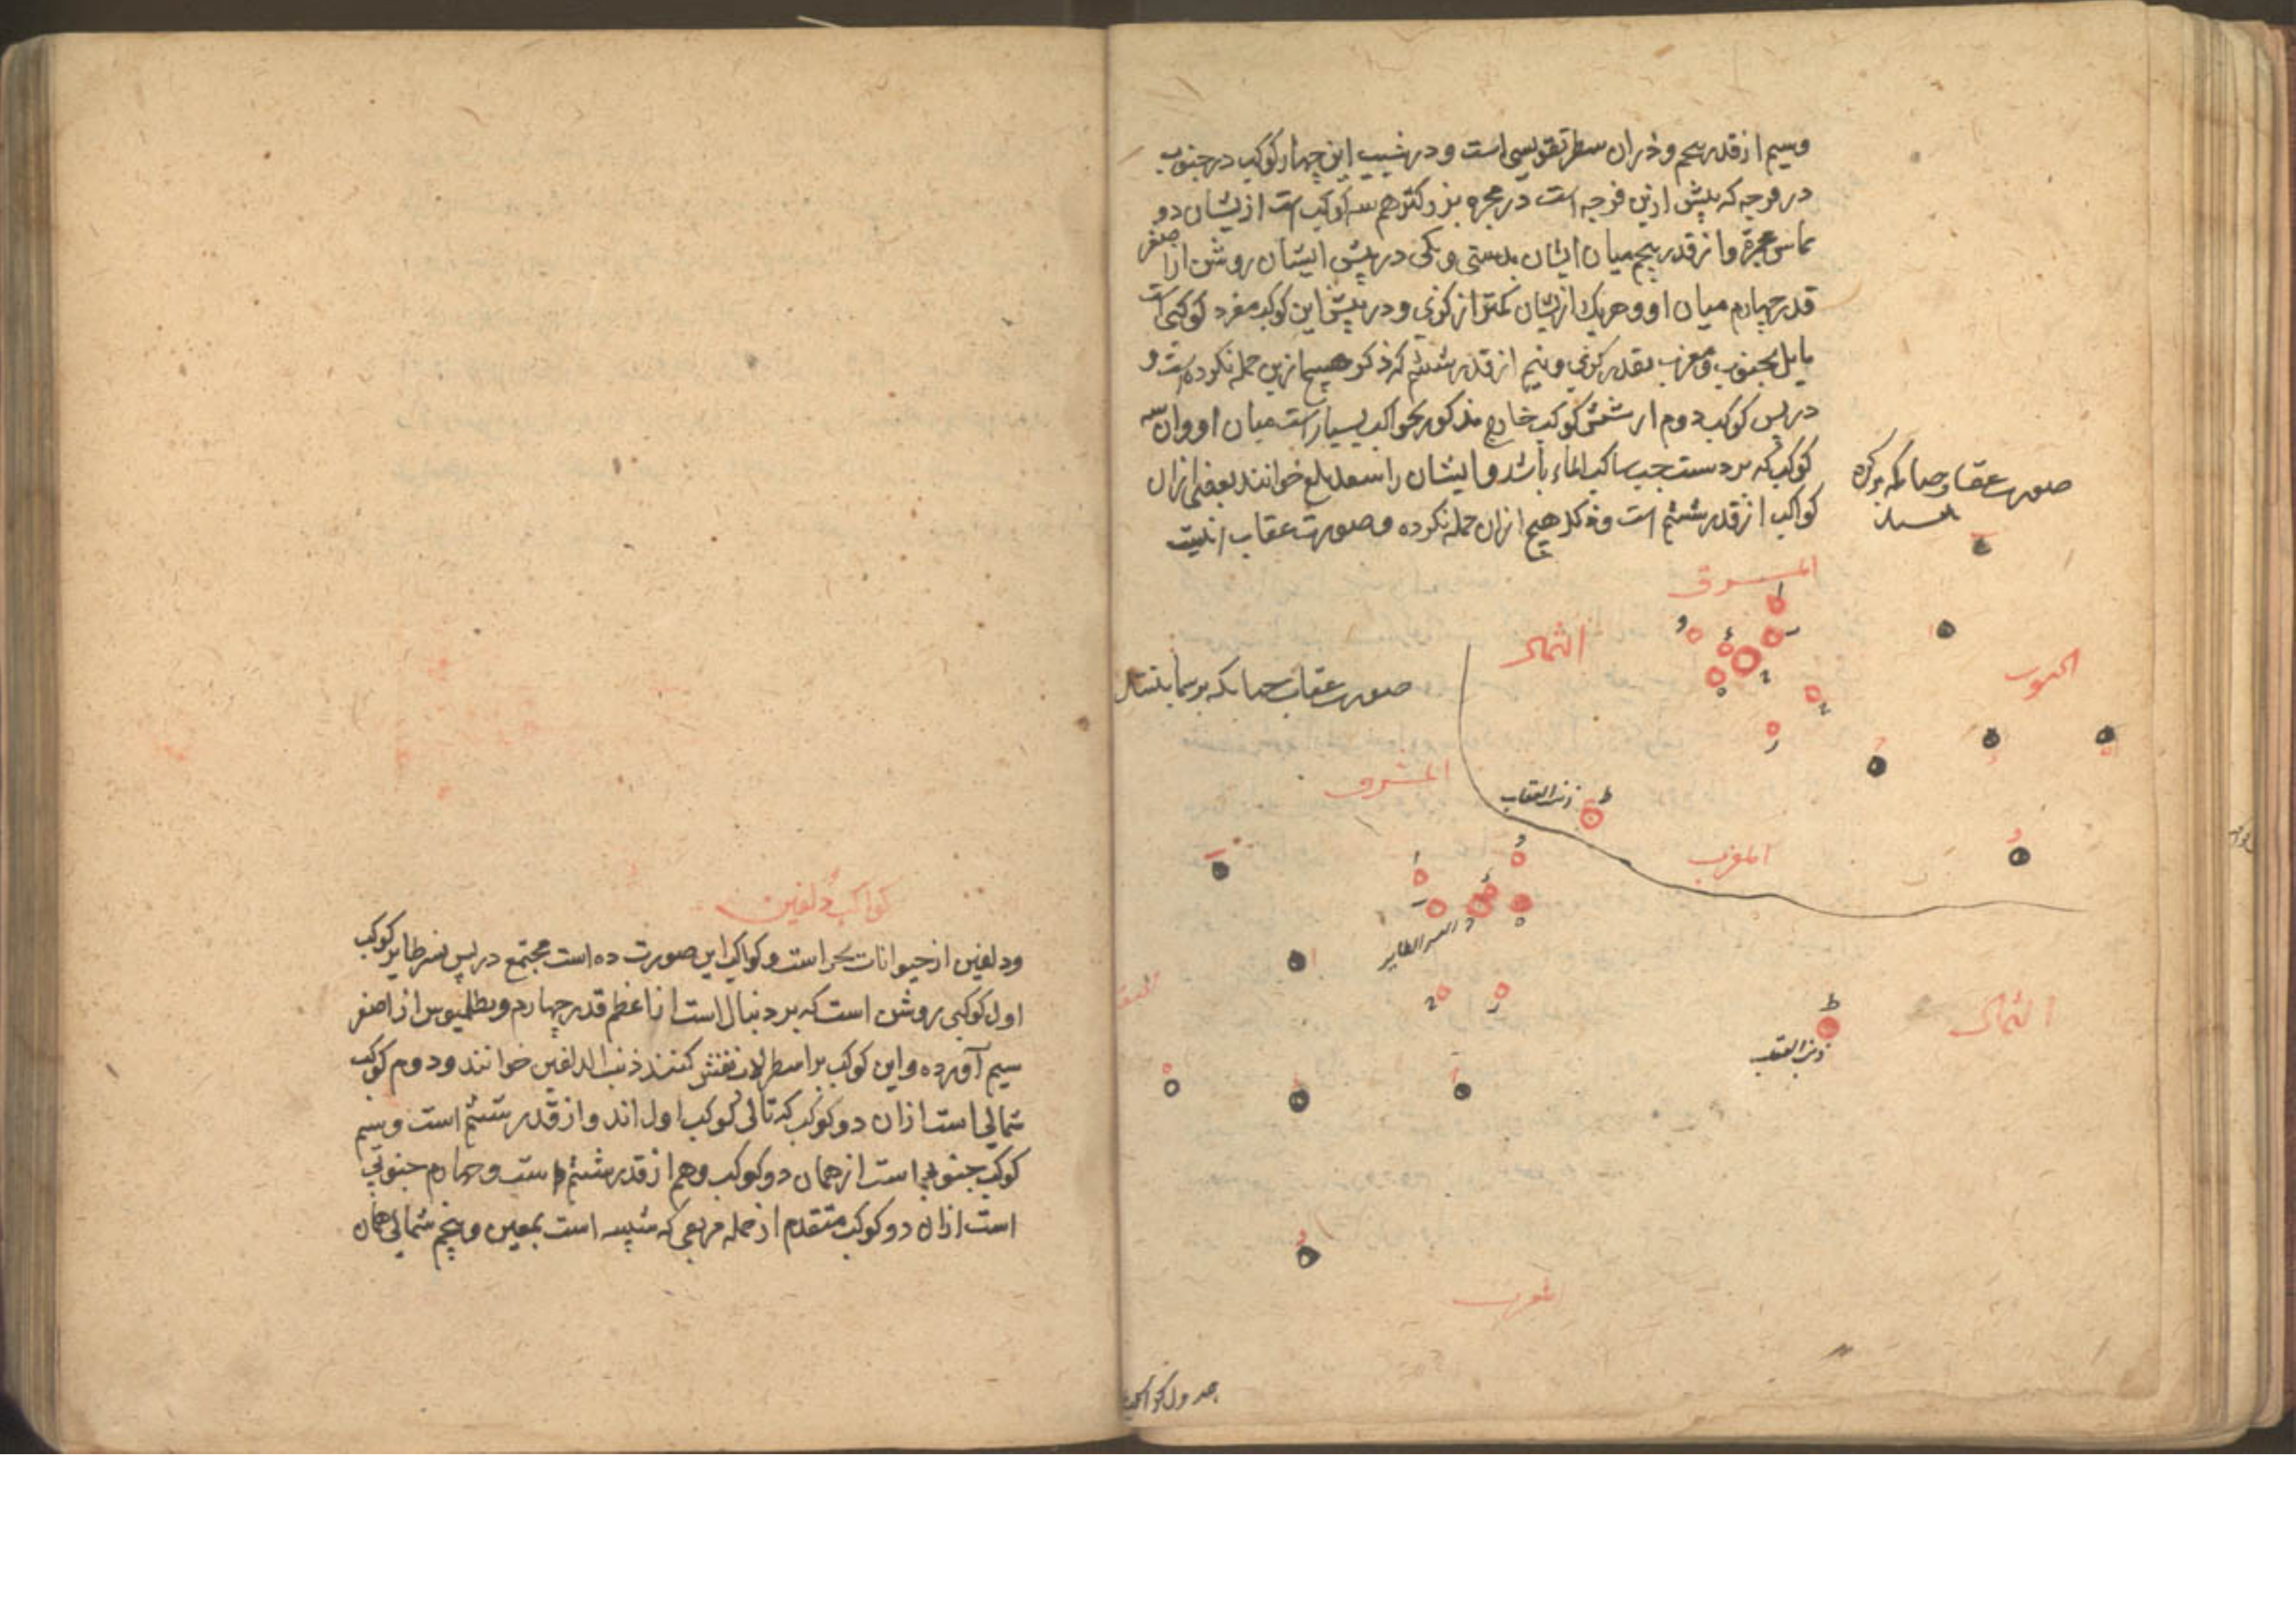 وسیم از قدر پنجم و در ان سطر تقویسی است و در شیب این چهار کوکب در جنوب
در فرجه که پیش ازین فرجه است در مجره بزرکتر هم سه کوکب است ازیشان دو
مماس مجره و از قدر پنجم میان ایشان بدستی و یکی در پیش ایشان روشن از اصغر
قدر چهارم میان او و هریک ازیشان کمتر از کزی و در پیش این کوکب مفرد کوکبی است
مایل بجنوب و مغرب بقدر کزی و نیم از قدر ششم که ذکر هیچ ازین جمله نکرده است و
در پس کوکب دوم از شش کوکب خارج مذکور کواکب بسیار است میان او و ان سه
کوکب که بر دست چپ ساکب الماء باشد و ایشان را سعد بلع خوانند بعضی ازان
کواکب از قدر ششم است و ذکر هیچ ازان جمله نکرده و صورت عقاب اینست
صورت عقاب چنانکه بر کره
المشرق
الشمال
الجنوب
صورت عقاب چنانکه بر سما
المشرق
ذنب العقاب
المغرب
النسر الطایر
الشمال
ذنب العقاب
المغرب
جدول کواکب
کواکب دلفین
و دلفین از حیوانات بحر است و کواکب این صورت ده است مجتمع در پس نسر طایر کوکب
اول کوکبی روشن است که بر دنبال است از اعظم قدر چهارم و بطلمیوس از اصغر
سیم آورده و این کوکب بر اسطرلاب نقش کنند ذنب الدلفین خوانند و دوم کوکب
شمالی است ازان دو کوکب که تالی کوکب اول اند و از قدر ششم است و سیم
کوکب جنوبی است از همان دو کوکب و هم از قدر ششم است و چهارم جنوبی
است ازان دو کوکب متقدم از جمله مربعی که شبیه است بمعین و پنجم شمالی همان